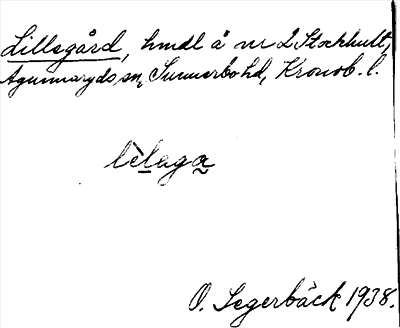 Lillegård, hmdl å nr 2 Stockhult,
Agunnaryds sn, Sunnerbo hd, Kronob. l.
lèlaga
O. Segerbäck 1938.